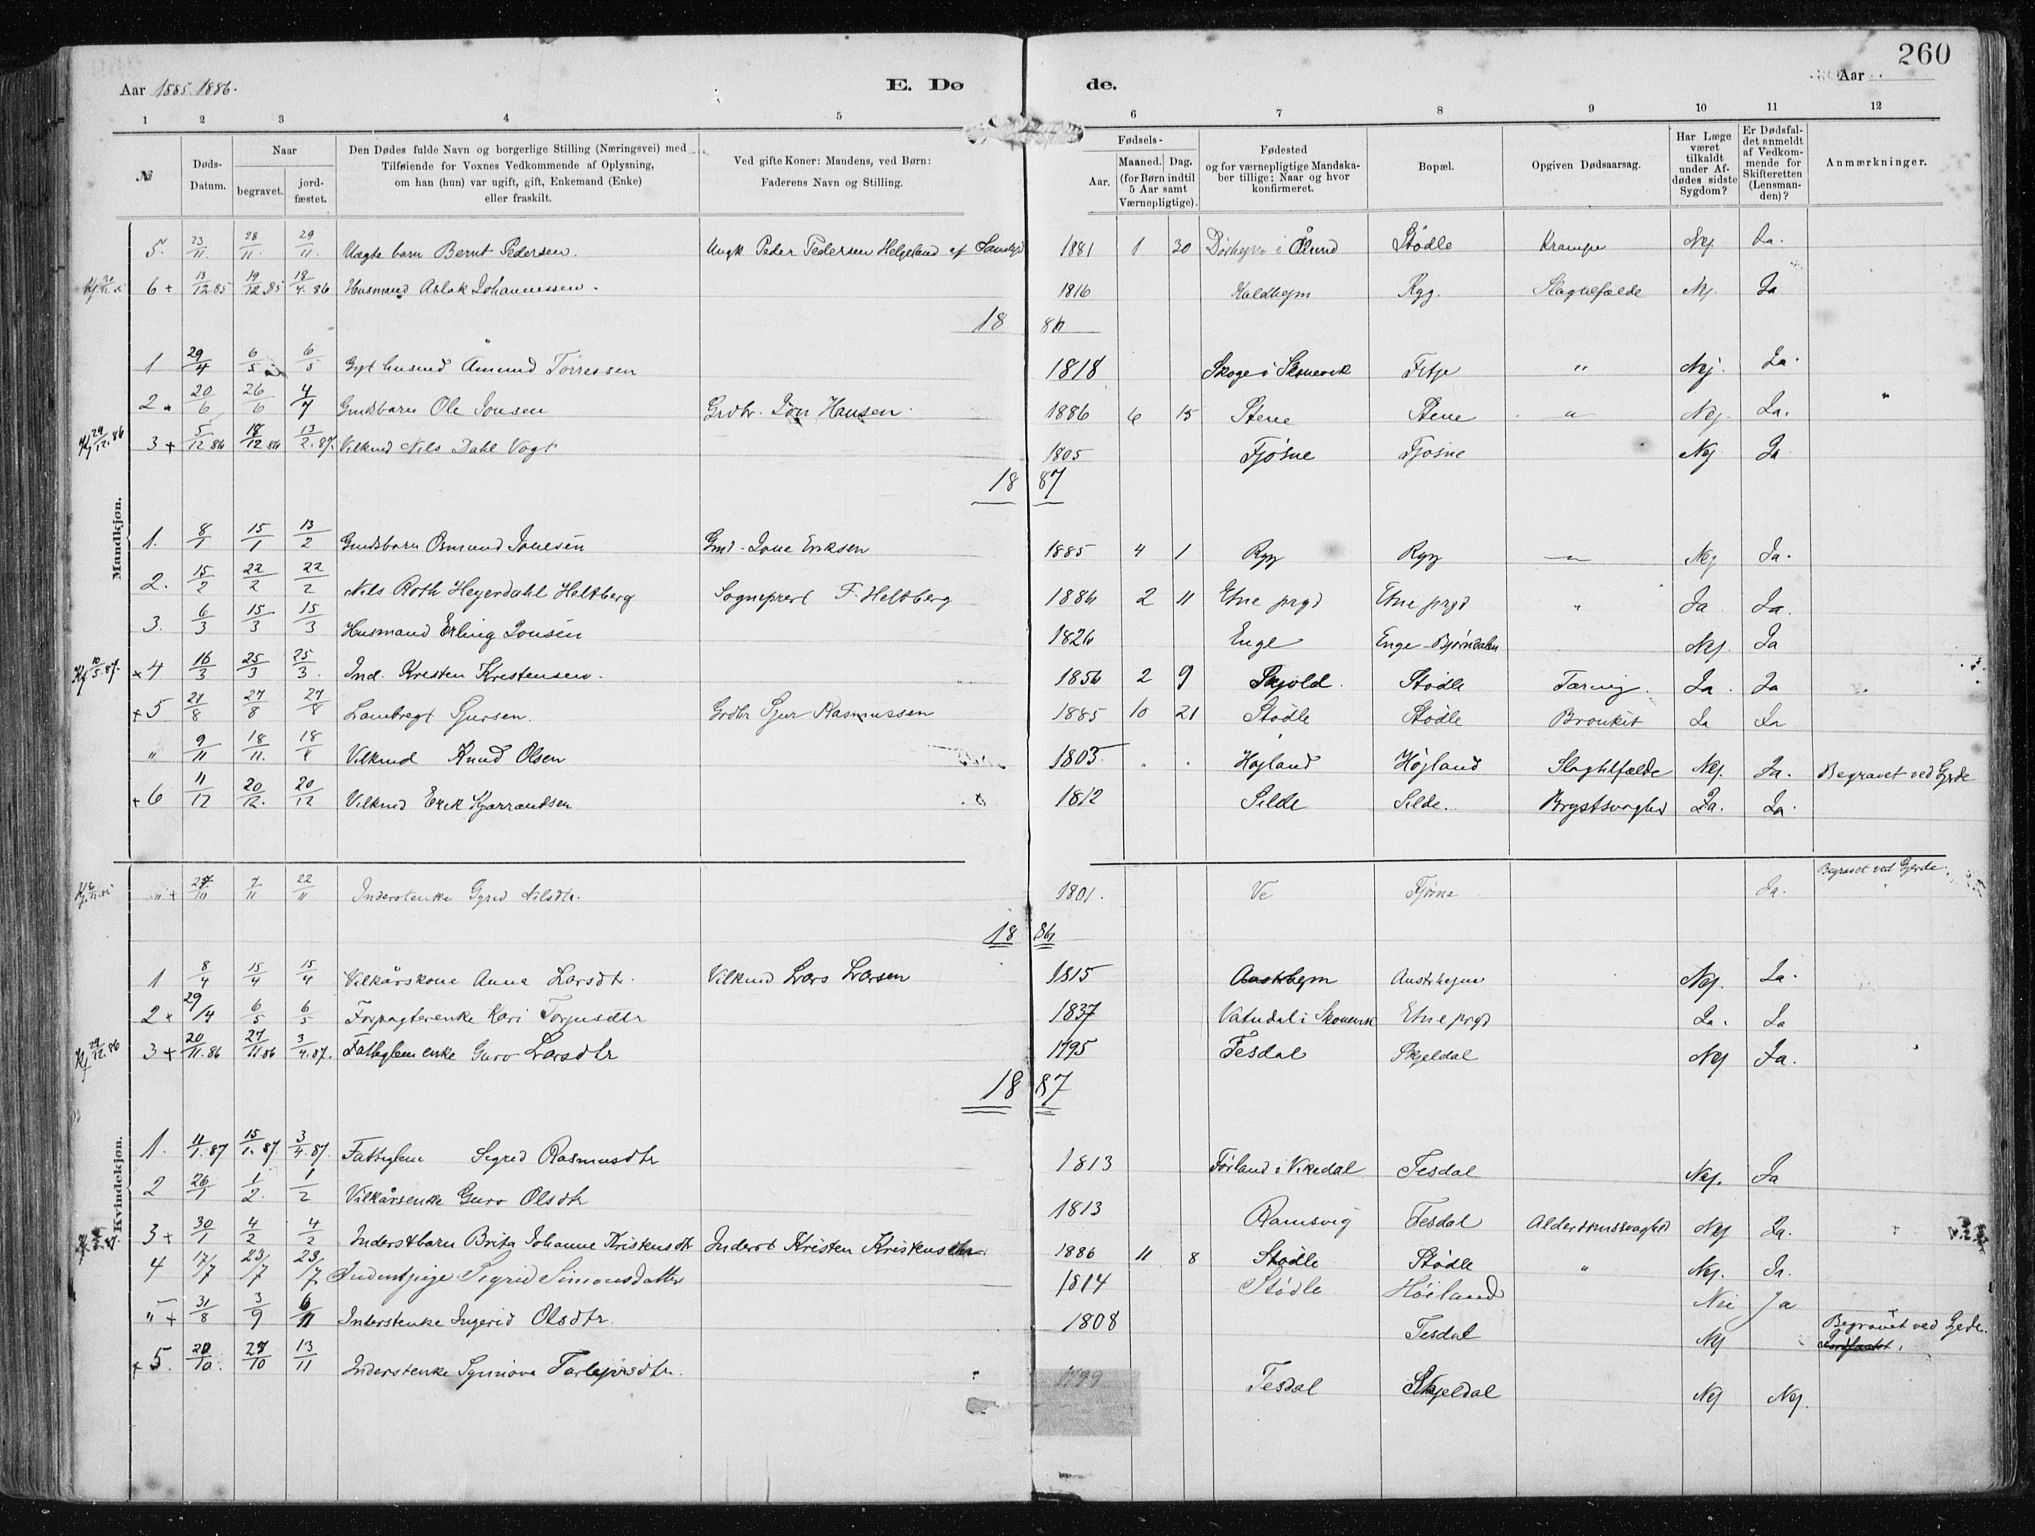 260
Aar 1885. 1886. E. Dø de. Aar
1 2 3 4 5 6 7 8 9 10 11 12
№ Døds-Datum. Naar begravet. jord-fæstet. Den Dødes fulde Navn og borgerlige Stilling (Næringsvei) med Tilføiende for Voxnes Vedkommende af Oplysning, om han (hun) var ugift, gift, Enkemand (Enke) eller fraskilt. Ved gifte Koner: Mandens, ved Børn: Faderens Navn og Stilling. Fødsels- Aar. Maaned. Dag. (for Børn indtil 5 Aar samt Værnepligtige). Fødested og for værnepligtige Mandskaber tillige: Naar og hvor konfirmeret. Bopæl. Opgiven Dødsaarsag. Har Læge været tilkaldt under Afdødes sidste Sygdom? Er Dødsfaldet anmeldt af Vedkommende for Skifteretten (Lensmanden)? Anmærkninger.
Mandkjøn.
5. 23/11 28/11. 29/11. Uægte barn Bernt Pedersen. Ungk Peder Pedersen Helgeland af 1881 1 30 i Ølund Stødle Krampe Nej Ja.
6 + 13/12.85 19/12.85 18/4.86 Husmand Aslak Johannessen. 1816 Kaldhejm Ryg. Slagtilfælde Nej. Ja
18 86
1 29/4 6/5 6/5 Gift husmd Åmund Tørressen 1818 Skoge i Skonevik Fitje " Nej. Ja.
2. 20/6 26/6 4/7 Gmdsbarn Ole Jonsen Grdbr. Jon Hansen. 1886 6 15 Stene Stene " Nej. Ja.
Kf 29/12.86 3 + 5/12 86 18/12.86 13/2.87. Vilkmd Nils Dahl Vogt 1805 Fjøsne Fjøsne Nej Ja
18 87
1. 8/1 15/1 13/2 Gmdsbarn Osmund Jonesen Gmd. Jone Eriksen 1885 4 1 Ryg Ryg — Nej Ja.
2. 15/2 22/2 22/2 Nils Roth Heyerdahl Heltberg Sogneprest F. Heltberg 1886 2 11 Etne prgd Etne prgd " Ja Ja.
3. 6/3 15/3 15/3 Husmand Erling Jonsen 1826 Enge Enge-Bjørndalen Nej. Ja
Kf 10/5.87. + 4 16/3 25/3 25/3. Ind. Kresten Kristensen. 1856 2 9 Skjold Stødle Tæring. Ja. Ja
+ 5 21/8 27/8 27/8 Lambregt Sjursen. Grdbr Sjur Rasmussen 1885 10 21 Stødle Stødle Bronkit Ja Ja
" 9/11 18/11. 18/11 Vilkmd Knud Olsen 1803. Højland Højland Slagtilfælde Nej. Ja. Begravet ved Gjerde
+ 6 11/12 20/12. 20/12 Vilkmd Erik Kjærrandsen 1812 Silde Silde. Brystsvaghed Ja. Ja.
Kvindekjøn.
" + 27/10 7/11 22/11 Inderstenke Gyrid Nilsdtr. 1801. Ve Fjøsne Ja. Begravet ved Gjerde.
18 86
1 8/4 15/4 15/4 Vilkårskone Anna Larsdtr. Vilkmd Lars Larsen 1815 Austrhejm Austrhejm Nej. Ja.
2 + 29/4 6/5 6/5 Forpagterenke Kari Torjusdtr 1837 Vatndal i Skonevik Etne prgd Ja. Ja
Kf 29/12.86 3 + 20/11.86 27/11.86 3/4.87. Fattiglem enke Guro Larsdtr 1795 Tesdal Skjeldal Nej Ja.
18 87
1. 11/1.87 15/1.87 3/4.87. Fattiglem Sigrid Rasmusdtr 1813 Førland i Vikedal Tesdal Nej. Ja
2 26/1 1/2. 1/2 Vilkårsenke Guro Olsdtr 1813 Ramsvig Tesdal Alderdomssvaghed Nej Ja.
3 + 30/1 4/2 4/2 Inderstbarn Brita Johanne Kristensdtr Inderst Kristen Kristensen 1886 11 8 Stødle Stødle " Nej. Ja.
4 17/7 23/7 23/7 Indentpige Sigrid Simonsdatter 1814 Stødle Höiland Nei Ja
" + 31/8 3/9 6/11 Inderstenke Ingerid Olsdtr. 1808 Tesdal Nej Begravet ved Gjerde. Jordfæstet.
+ 5. 20/10. 27/10 13/11 Inderstenke Synnøve Torlejvsdtr. 1799 Tesdal Skjeldal Nej Nej.